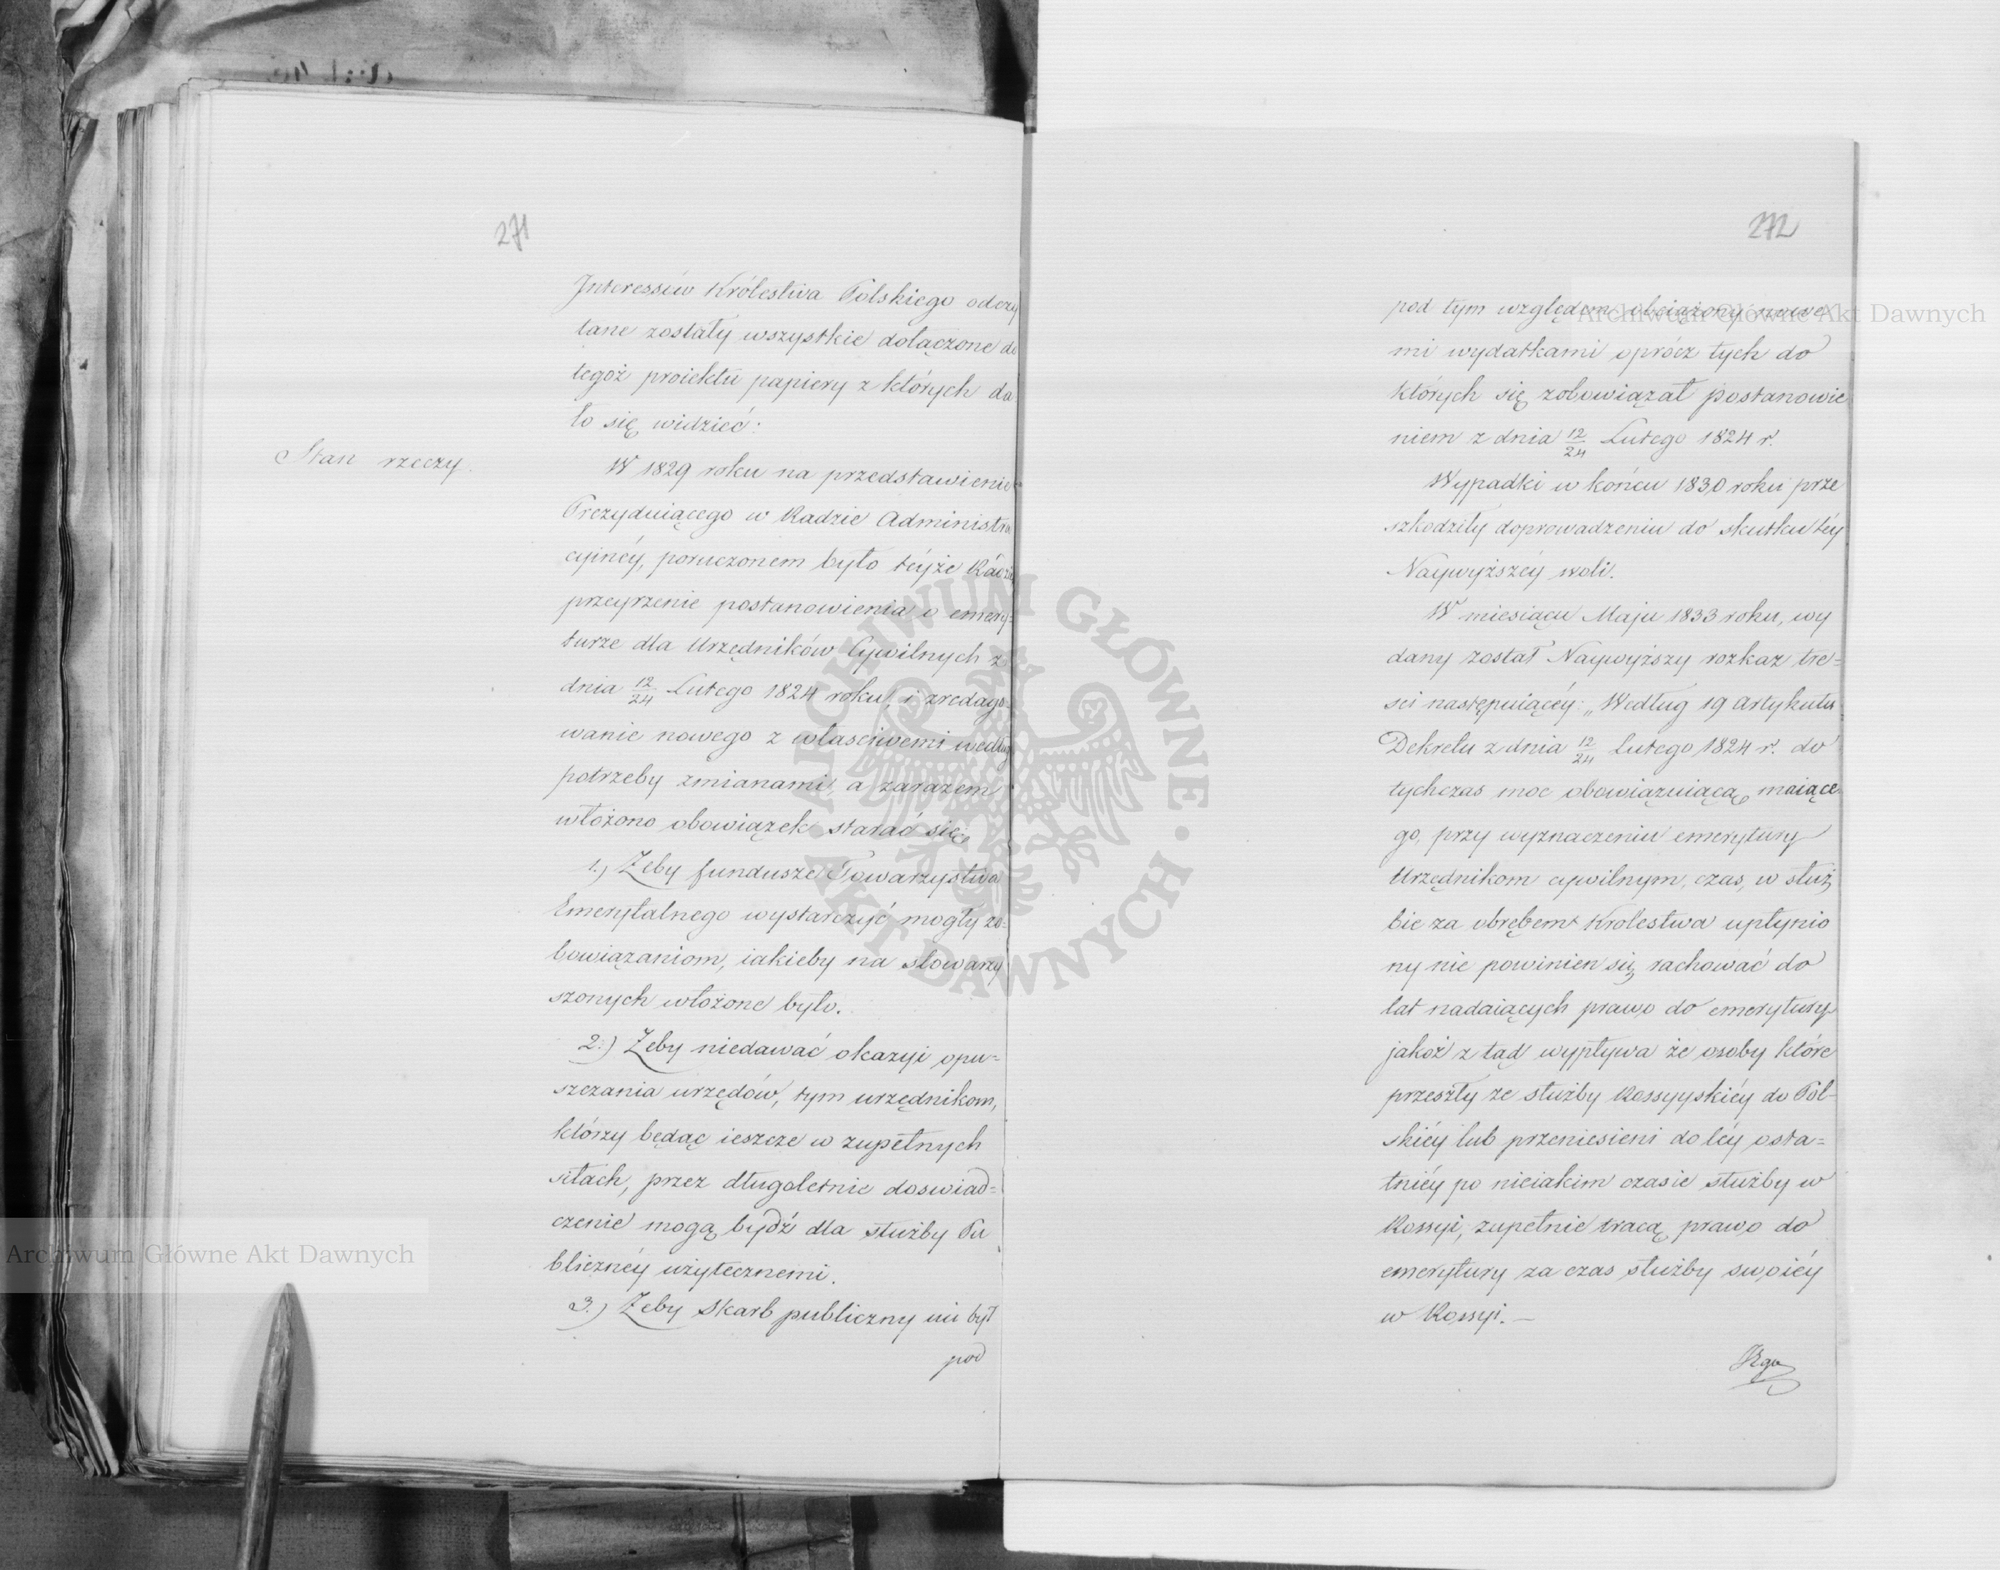 271
Interessów Królestwa Polskiego odczy
tane zostały wszystkie dołączone do
tegoż proiektu papiery z których da
ło się widzieć:
Stan rzeczy.
W 1829 roku na przedstawienie
Prezyduiącego w Radzie Administra
cyinéy, poruczonem było téyże Radzie
przeyrzenie postanowienia o emery-
turze dla Urzędników Cywilnych z
dnia 12/24 Lutego 1824 roku, i zredago-
wanie nowego z własciwemi według
potrzeby zmianami, a zarazem
włożono obowiązek starać się
1.) Żeby fundusze Towarzystwa
Emerytalnego wystarczyć mogły zo-
bowiązaniom, iakieby na stowarzy
szonych włożone było.
2.) Żeby niedawać okazyi opu=
szczania urzędów, tym urzędnikom,
którzy będąc ieszcze w zupełnych
siłach, przez długoletnie doswiad=
czenie mogą bydź dla służby Pu
blicznéy użytecznemi.
3.) Żeby Skarb publiczny nie był
pod
272
pod tym względem obciążony nowe
mi wydatkami oprócz tych do
których się zobowiązał postanowie
niem z dnia 12/24 Lutego 1824 r.
Wypadki w końcu 1830 roku prze
szkodziły doprowadzeniu do skutku téy
Naywyższéy woli.
W miesiącu Maju 1833 roku, wy
dany został Naywyższy rozkaz tre=
sci następuiącéy: „Według 19 artykułu
Dekretu z dnia 12/24 Lutego 1824 r. do
tychczas moc obowiązuiącą maiące
go, przy wyznaczeniu emerytury
Urzędnikom cywilnym, czas, w służ
bie za obrębem Krolestwa upłynio
ny nie powinien się rachować do
lat nadaiących prawo do emerytury
jakoż z tąd wypływa że osoby które
przeszły ze służby Rossyyskiéy do Pol=
skiéy lub przeniesieni do téy osta=
tniéy po nieiakim czasie służby w
Rossyi, zupełnie tracą prawo do
emerytury za czas służby swoiéy
w Rossyi. —
Archiwum Główne Akt Dawnych
Archiwum Główne Akt Dawnych
ARCHIWUM GŁÓWNE · AKT DAWNYCH ·